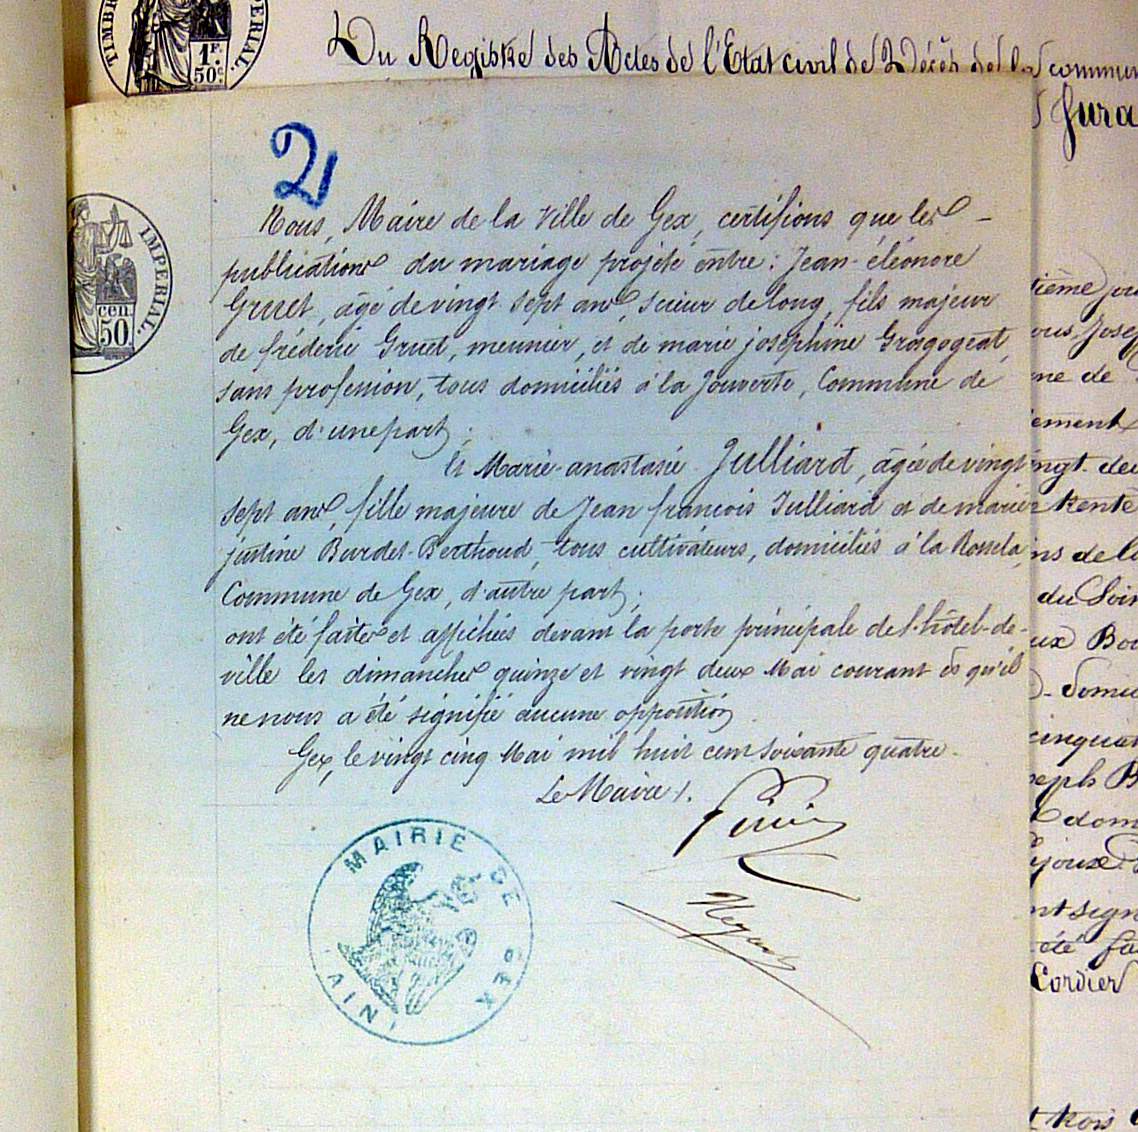 TIMBRE IMPERIAL.
1 F. 50 c.
Du Registre des Actes de l'Etat civil de Décès de la commun
Jura
2
IMPERIAL.
50 cen.
Nous, Maire de la Ville de Gex, certifions que les -
publications du mariage projeté entre : Jean-éléonore
Gruet, âgé de vingt sept ans, scieur de long, fils majeur
de fréderic Gruet, meunier, et de marie joséphine Grosgogeat,
sans profession, tous domiciliés à la Jouverte, Commune de
Gex, d'une part ;
Et Marie-anastasie Julliard, âgée de vingt
sept ans, fille majeure de Jean françois Julliard et de marie
justine Burdet-Berthoud, tous cultivateurs, domiciliés à la
Commune de Gex, d'autre part ;
ont été faites et affichées devant la porte principale de l'hôtel-de-
ville les dimanches quinze et vingt deux Mai courant et qu'il
ne nous a été signifié aucune opposition.
Gex, le vingt cinq Mai mil huit cent soixante quatre.
Le Maire /.
MAIRIE DE GEX
(AIN)
tième jou
ous, Josep
ne de
ement
ngt deu
trente
ns de la
du Soir
ux Bou
domic
cinquan
seph B
dom
ijoux
nt sign
été fa
Cordier
t trois